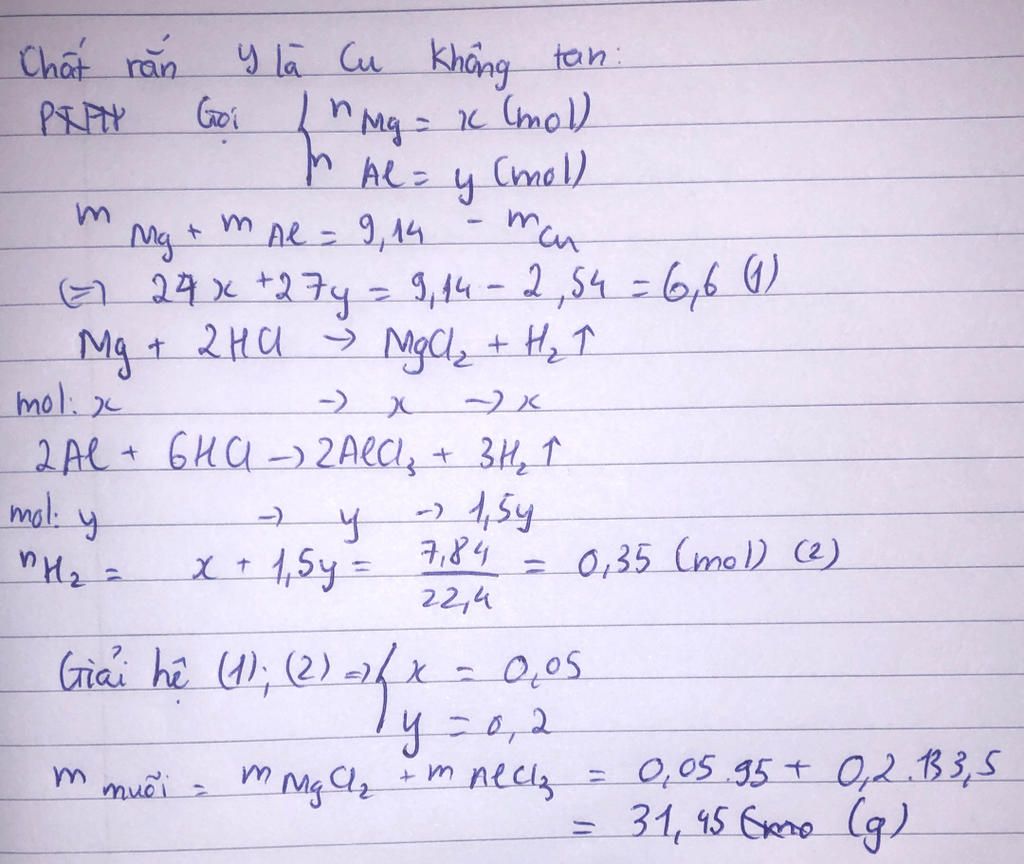 Chất rắn Y là Cu không tan:
Gọi { n Mg = x (mol)
n Al = y (mol)
m Mg + m Al = 9,14 - m Cu
(=) 24x + 27y = 9,14 - 2,54 = 6,6 (1)
Mg + 2HCl → MgCl₂ + H₂↑
mol: x → x → x
2Al + 6HCl → 2AlCl₃ + 3H₂↑
mol: y → y → 1,5y
nH₂ = x + 1,5y = 7,84/22,4 = 0,35 (mol) (2)
Giải hệ (1); (2) => { x = 0,05
y = 0,2
m muối = m MgCl₂ + m AlCl₃ = 0,05.95 + 0,2.133,5
= 31,45 (g)